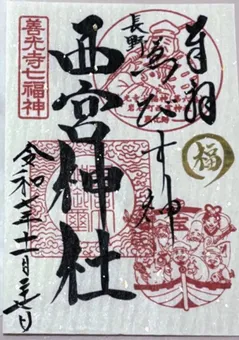 奉拝
長野
ゑびす神
福
西宮神社
善光寺七福神
令和七年十一月